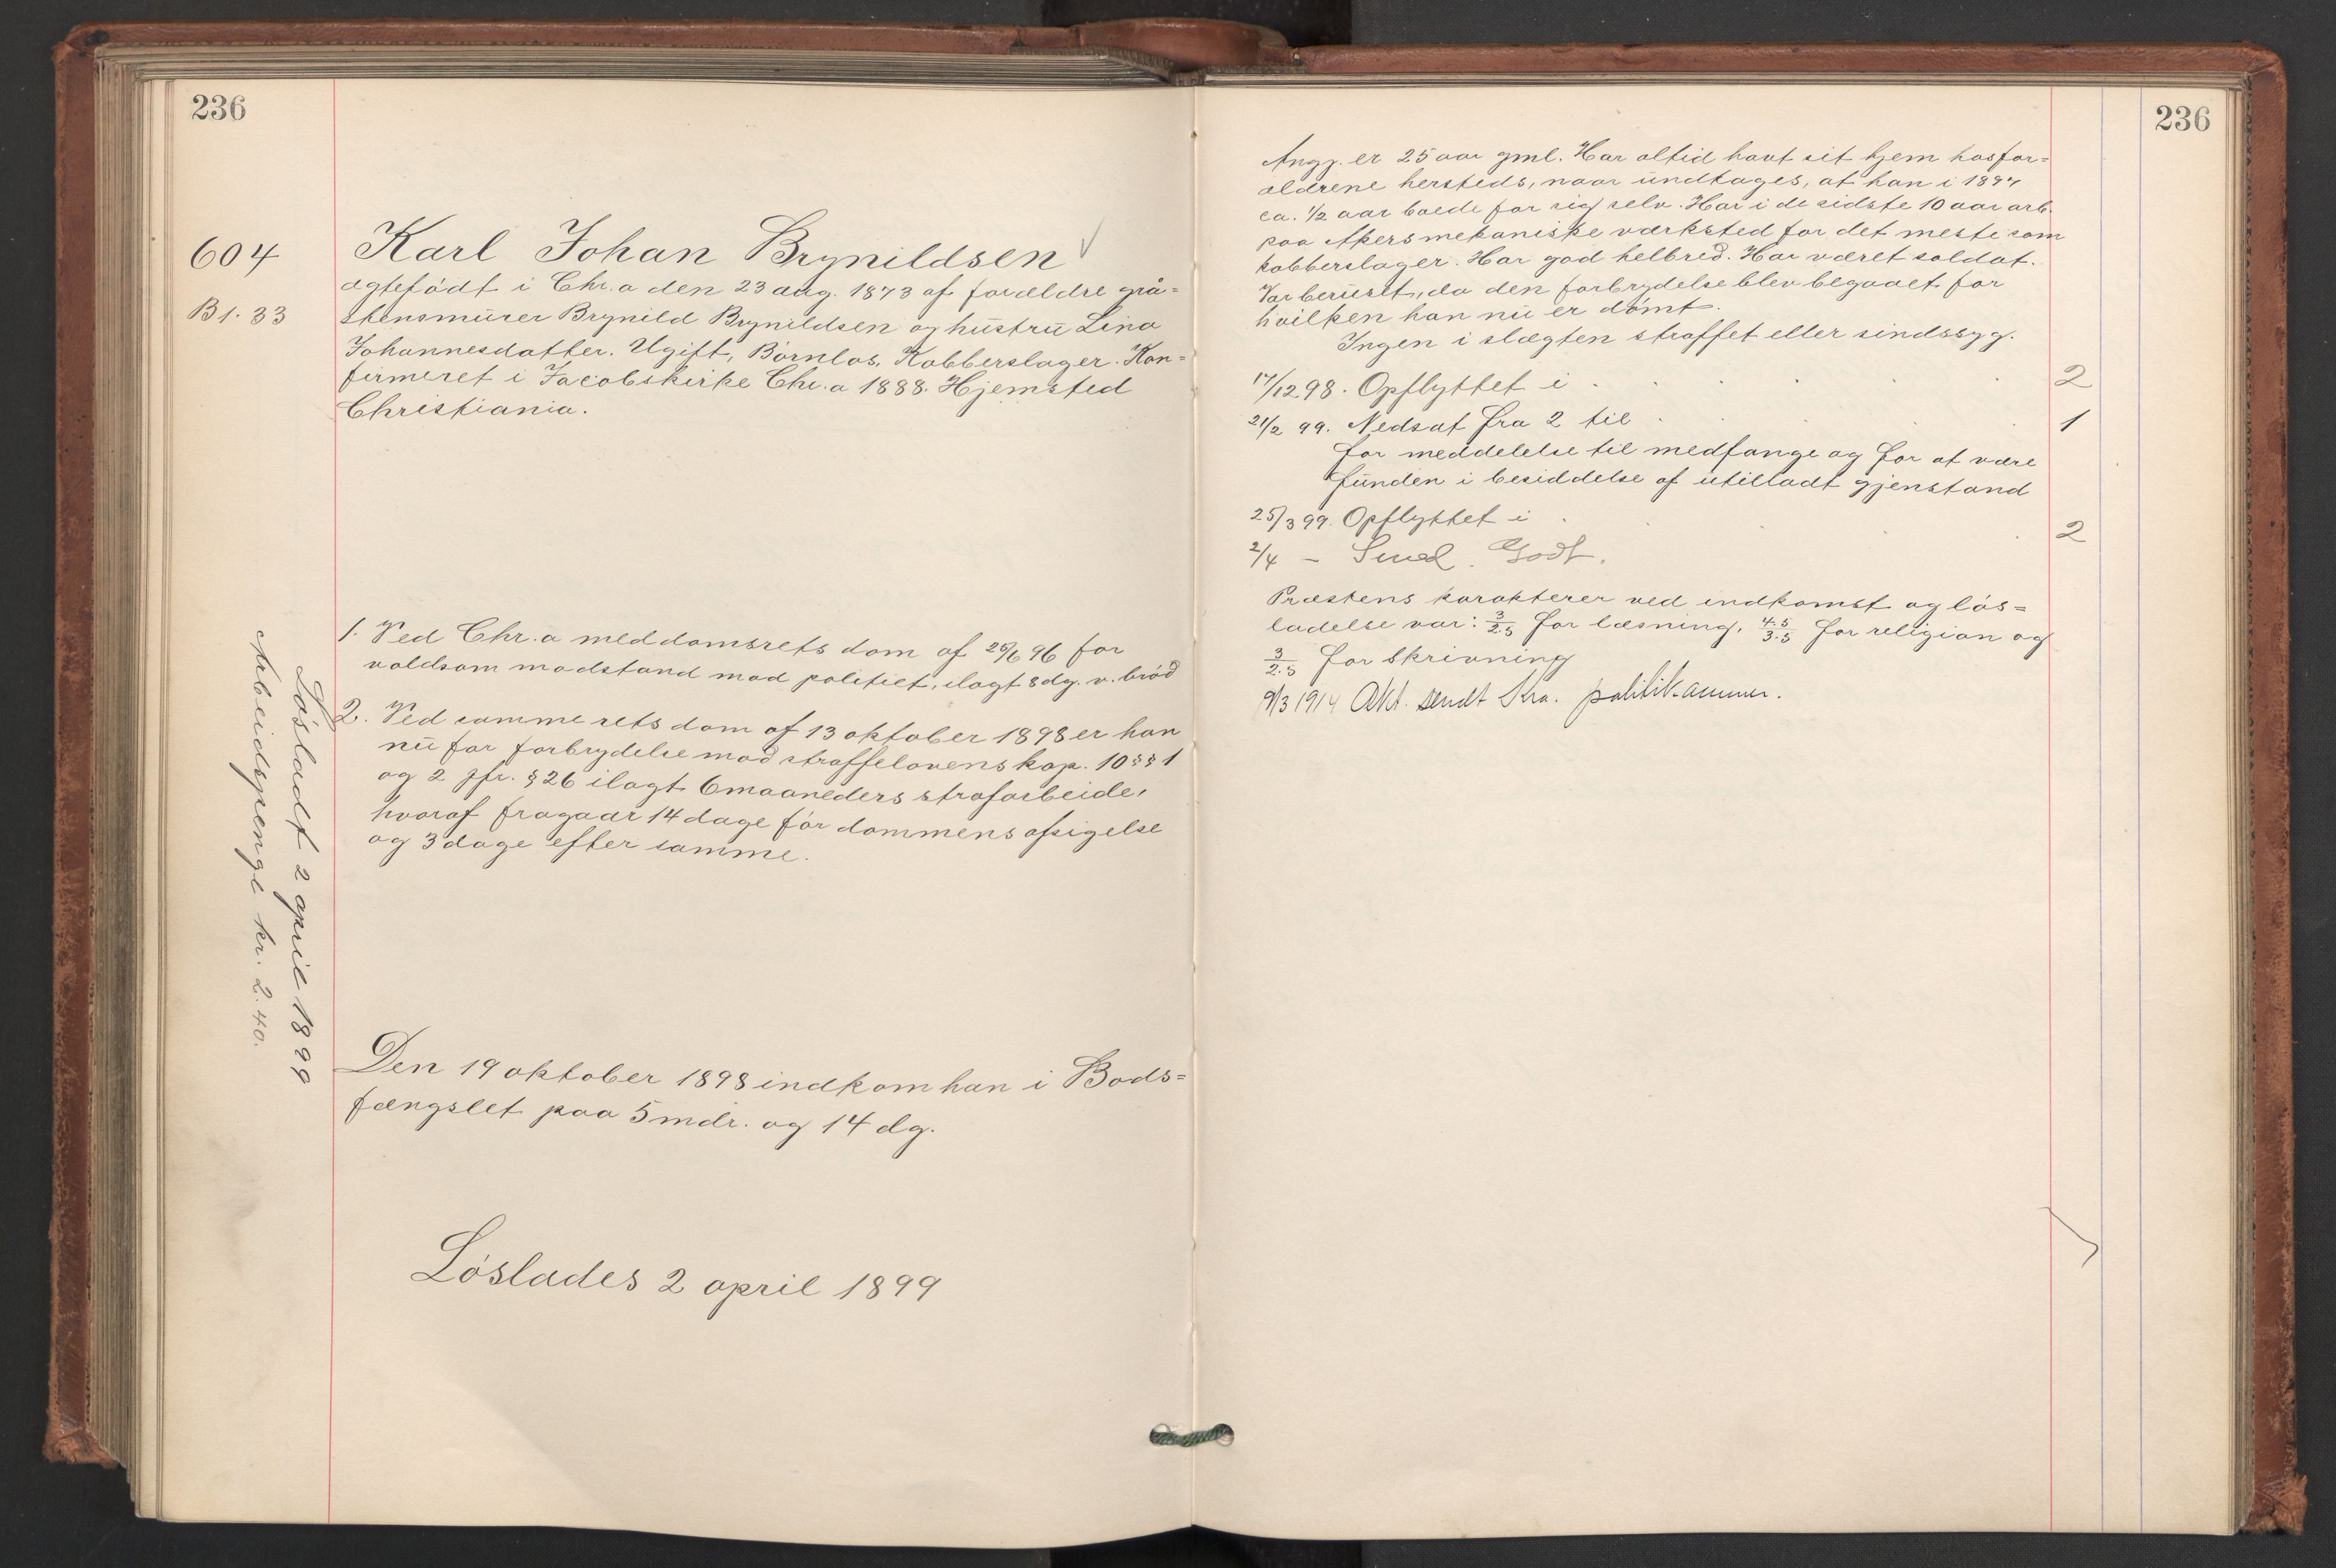 236
604
B 1. 33
Karl Johan Brynildsen
ægtefödt i Chr.a den 23 aug. 1873 af forældre grå=
stensmürer Brynild Brynildsen og hüstrü Lina
Johannesdatter. Ugift, Börnlös, Kobberslager. Kon=
firmeret i Jacobskirke Chr.a 1888. Hjemsted
Christiania.
1. Ved Chr.a meddomsrets dom af 26/6 96 for
voldsom modstand mod politiet, ilagt 8 dg. v. bröd
2. Ved samme rets dom af 13 oktober 1898 er han
nü for forbrydelse mod straffelovens kap. 10 §§ 1
og 2 jfr. § 26 ilagt 6 maaneders strafarbeide,
hvoraf fragaar 14 dage för dommens afsigelse
og 3 dage efter samme.
Den 19 oktober 1898 indkom han i Bods=
fængslet paa 5 mdr. og 14 dg.
Löslades 2 april 1899
Lösladt 2 april 1899
Arbeidspenge kr. 2.40.
236
Angj. er 25 aar gml. Har altid havt sit hjem hos for=
ældrene hersteds, naar ündtages, at han i 1894
ca. 1/2 aar boede for sig selv. Har i de sidste 10 aar arb.
paa Akers mekaniske værksted for det meste som
kobberslager. Har god helbred. Har været soldat.
Var berüset, da den forbrydelse blev begaaet for
hvilken han nü er dömt.
Ingen i slægten straffet eller sindssyg.
17/12 98. Opflyttet i . . . . 2
21/2 99. Nedsat fra 2 til . . . 1
for meddelelse til medfange og for at være
fünden i besiddelse af ütilladt gjenstand
25/3 99. Opflyttet i . . . 2
2/4 – . Godt.
Præstens karakterer ved indkomst og lös=
ladelse var: 3/2.5 for læsning, 4.5/3.5 for religion og
3/2.5 for skrivning
9/3 1914 Akt. sendt Kra. politikammer.